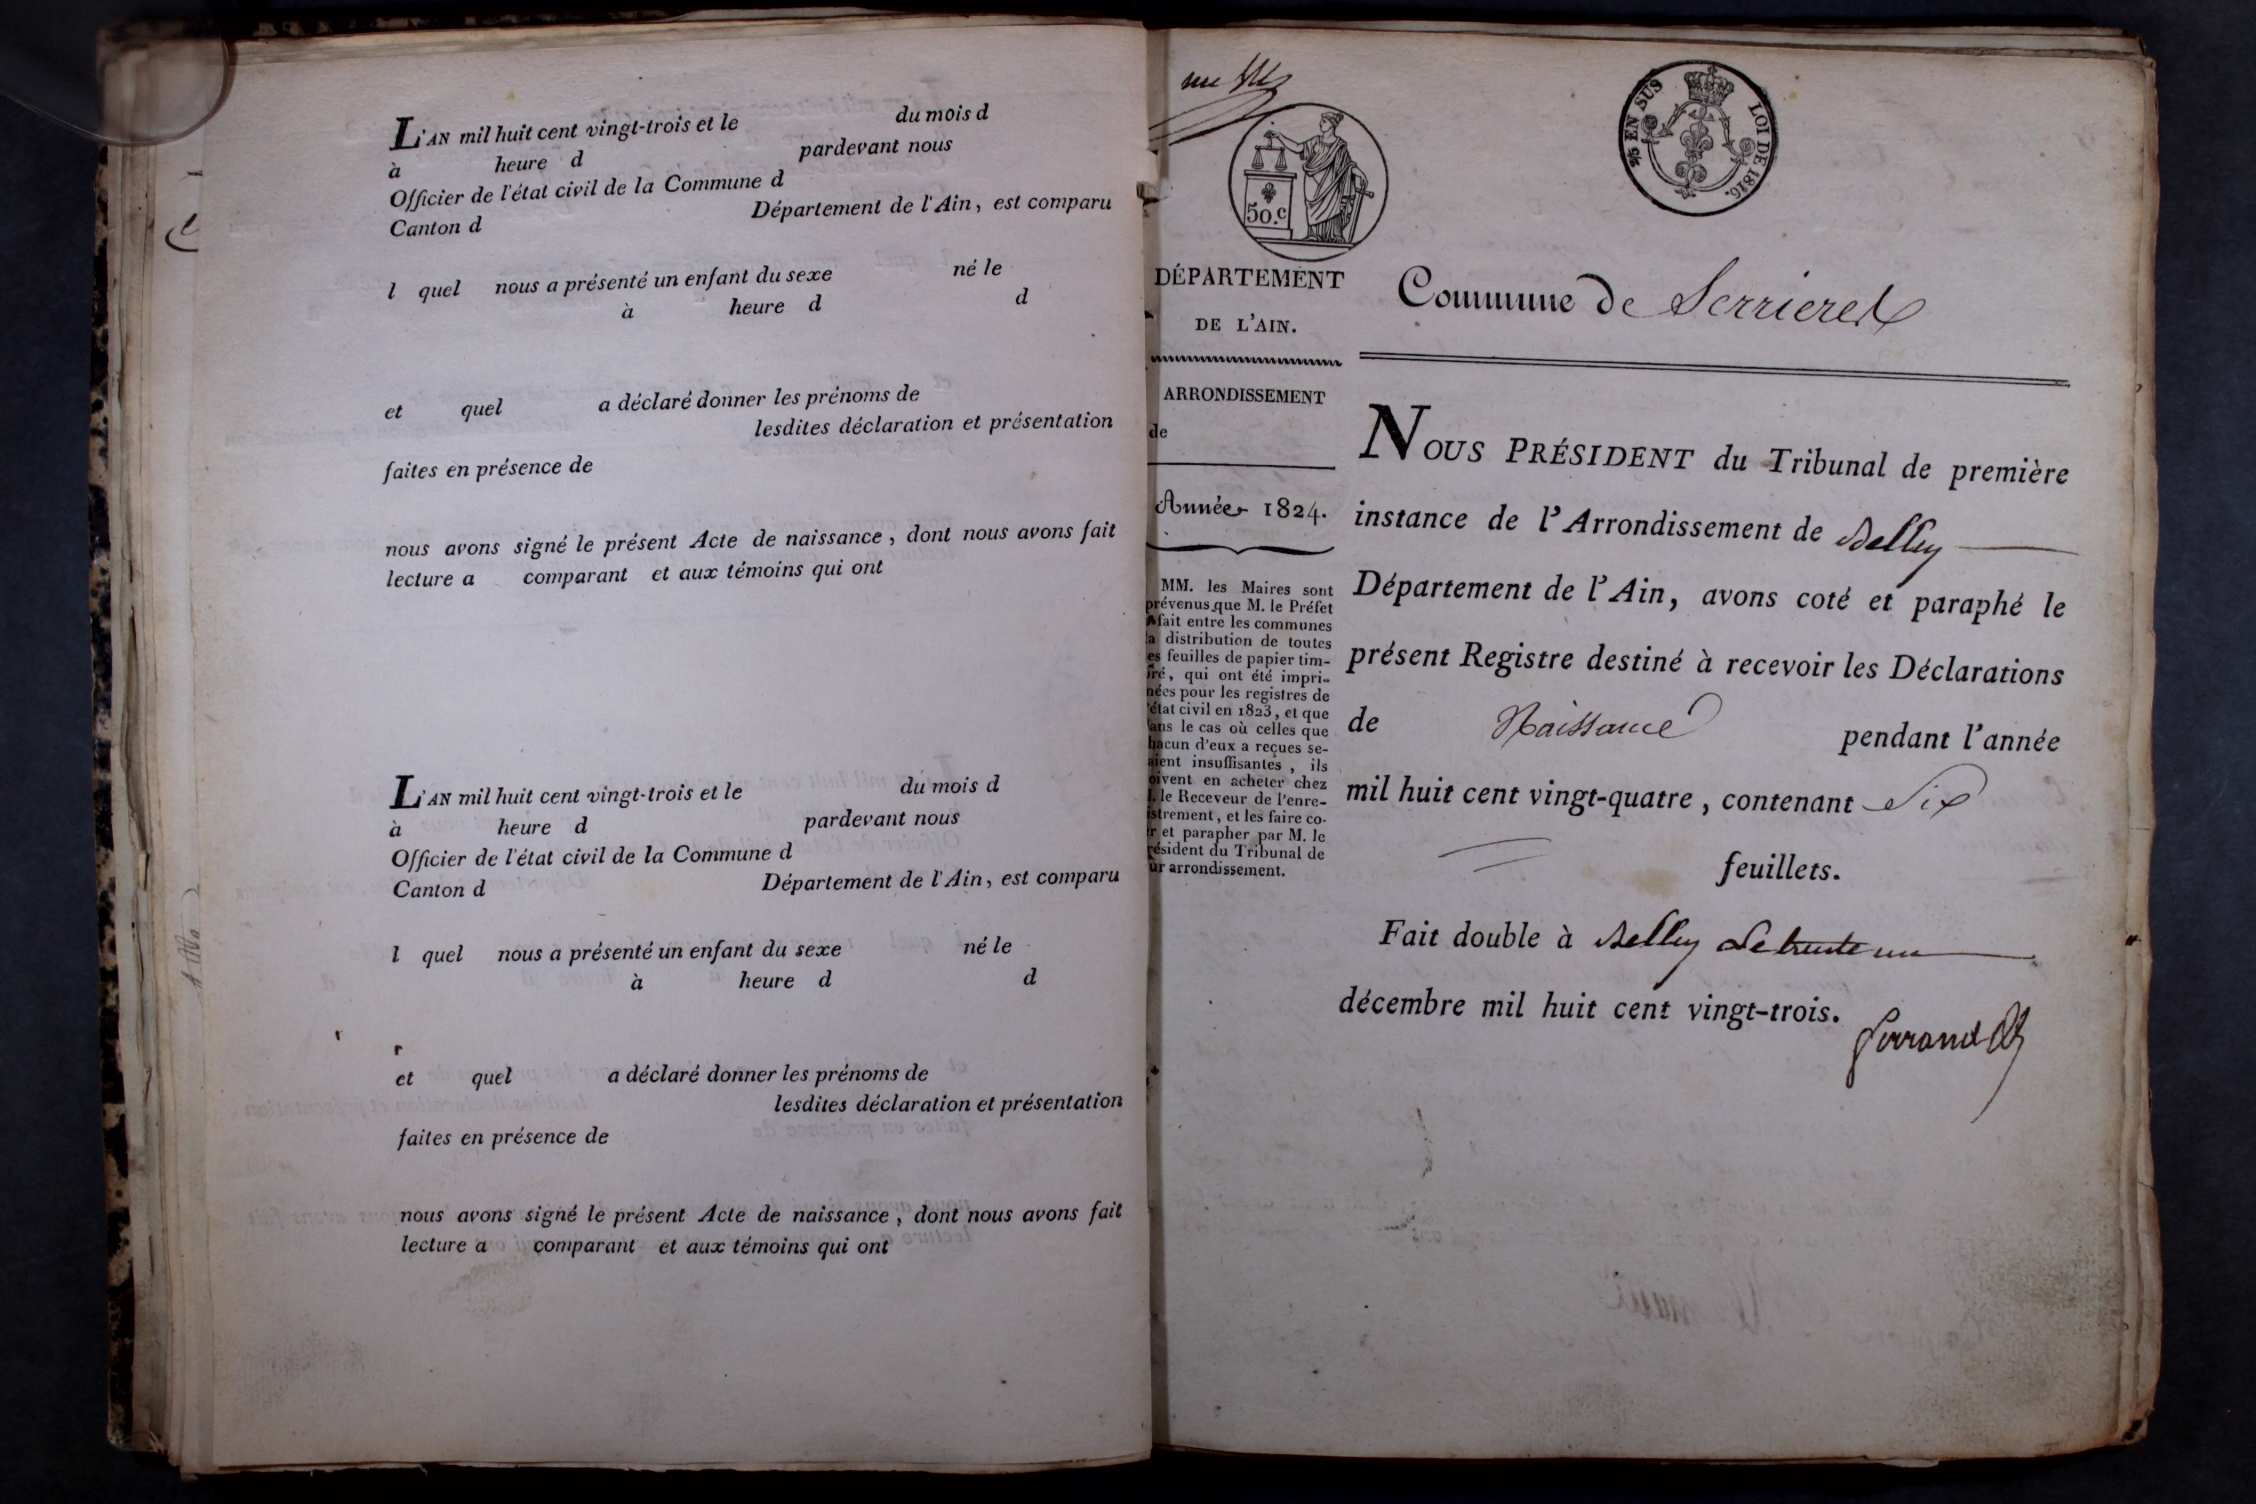 L'AN mil huit cent vingt-trois et le du mois d
à heure d pardevant nous
Officier de l'état civil de la Commune d
Canton d Département de l'Ain, est comparu
l quel nous a présenté un enfant du sexe né le
à heure d d
et quel a déclaré donner les prénoms de
lesdites déclaration et présentation
faites en présence de
nous avons signé le présent Acte de naissance, dont nous avons fait
lecture a comparant et aux témoins qui ont
L'AN mil huit cent vingt-trois et le du mois d
à heure d pardevant nous
Officier de l'état civil de la Commune d
Canton d Département de l'Ain, est comparu
l quel nous a présenté un enfant du sexe né le
à heure d d
et quel a déclaré donner les prénoms de
lesdites déclaration et présentation
faites en présence de
nous avons signé le présent Acte de naissance, dont nous avons fait
lecture a comparant et aux témoins qui ont
50.c
EN SUS LOI DE 1816.
DÉPARTEMENT
DE L'AIN.
ARRONDISSEMENT
de
Année 1824.
MM. les Maires sont
prévenus que M. le Préfet
fait entre les communes
a distribution de toutes
es feuilles de papier tim-
ré, qui ont été impri-
nées pour les registres de
'état civil en 1823, et que
ans le cas où celles que
hacun d'eux a reçues se-
aient insuffisantes, ils
oivent en acheter chez
. le Receveur de l'enre-
istrement, et les faire co-
r et parapher par M. le
résident du Tribunal de
ur arrondissement.
Commune de Serrieres
NOUS PRÉSIDENT du Tribunal de première
instance de l'Arrondissement de Belley
Département de l'Ain, avons coté et paraphé le
présent Registre destiné à recevoir les Déclarations
de Naissance pendant l'année
mil huit cent vingt-quatre, contenant Six
feuillets.
Fait double à Belley Le trente un
décembre mil huit cent vingt-trois.